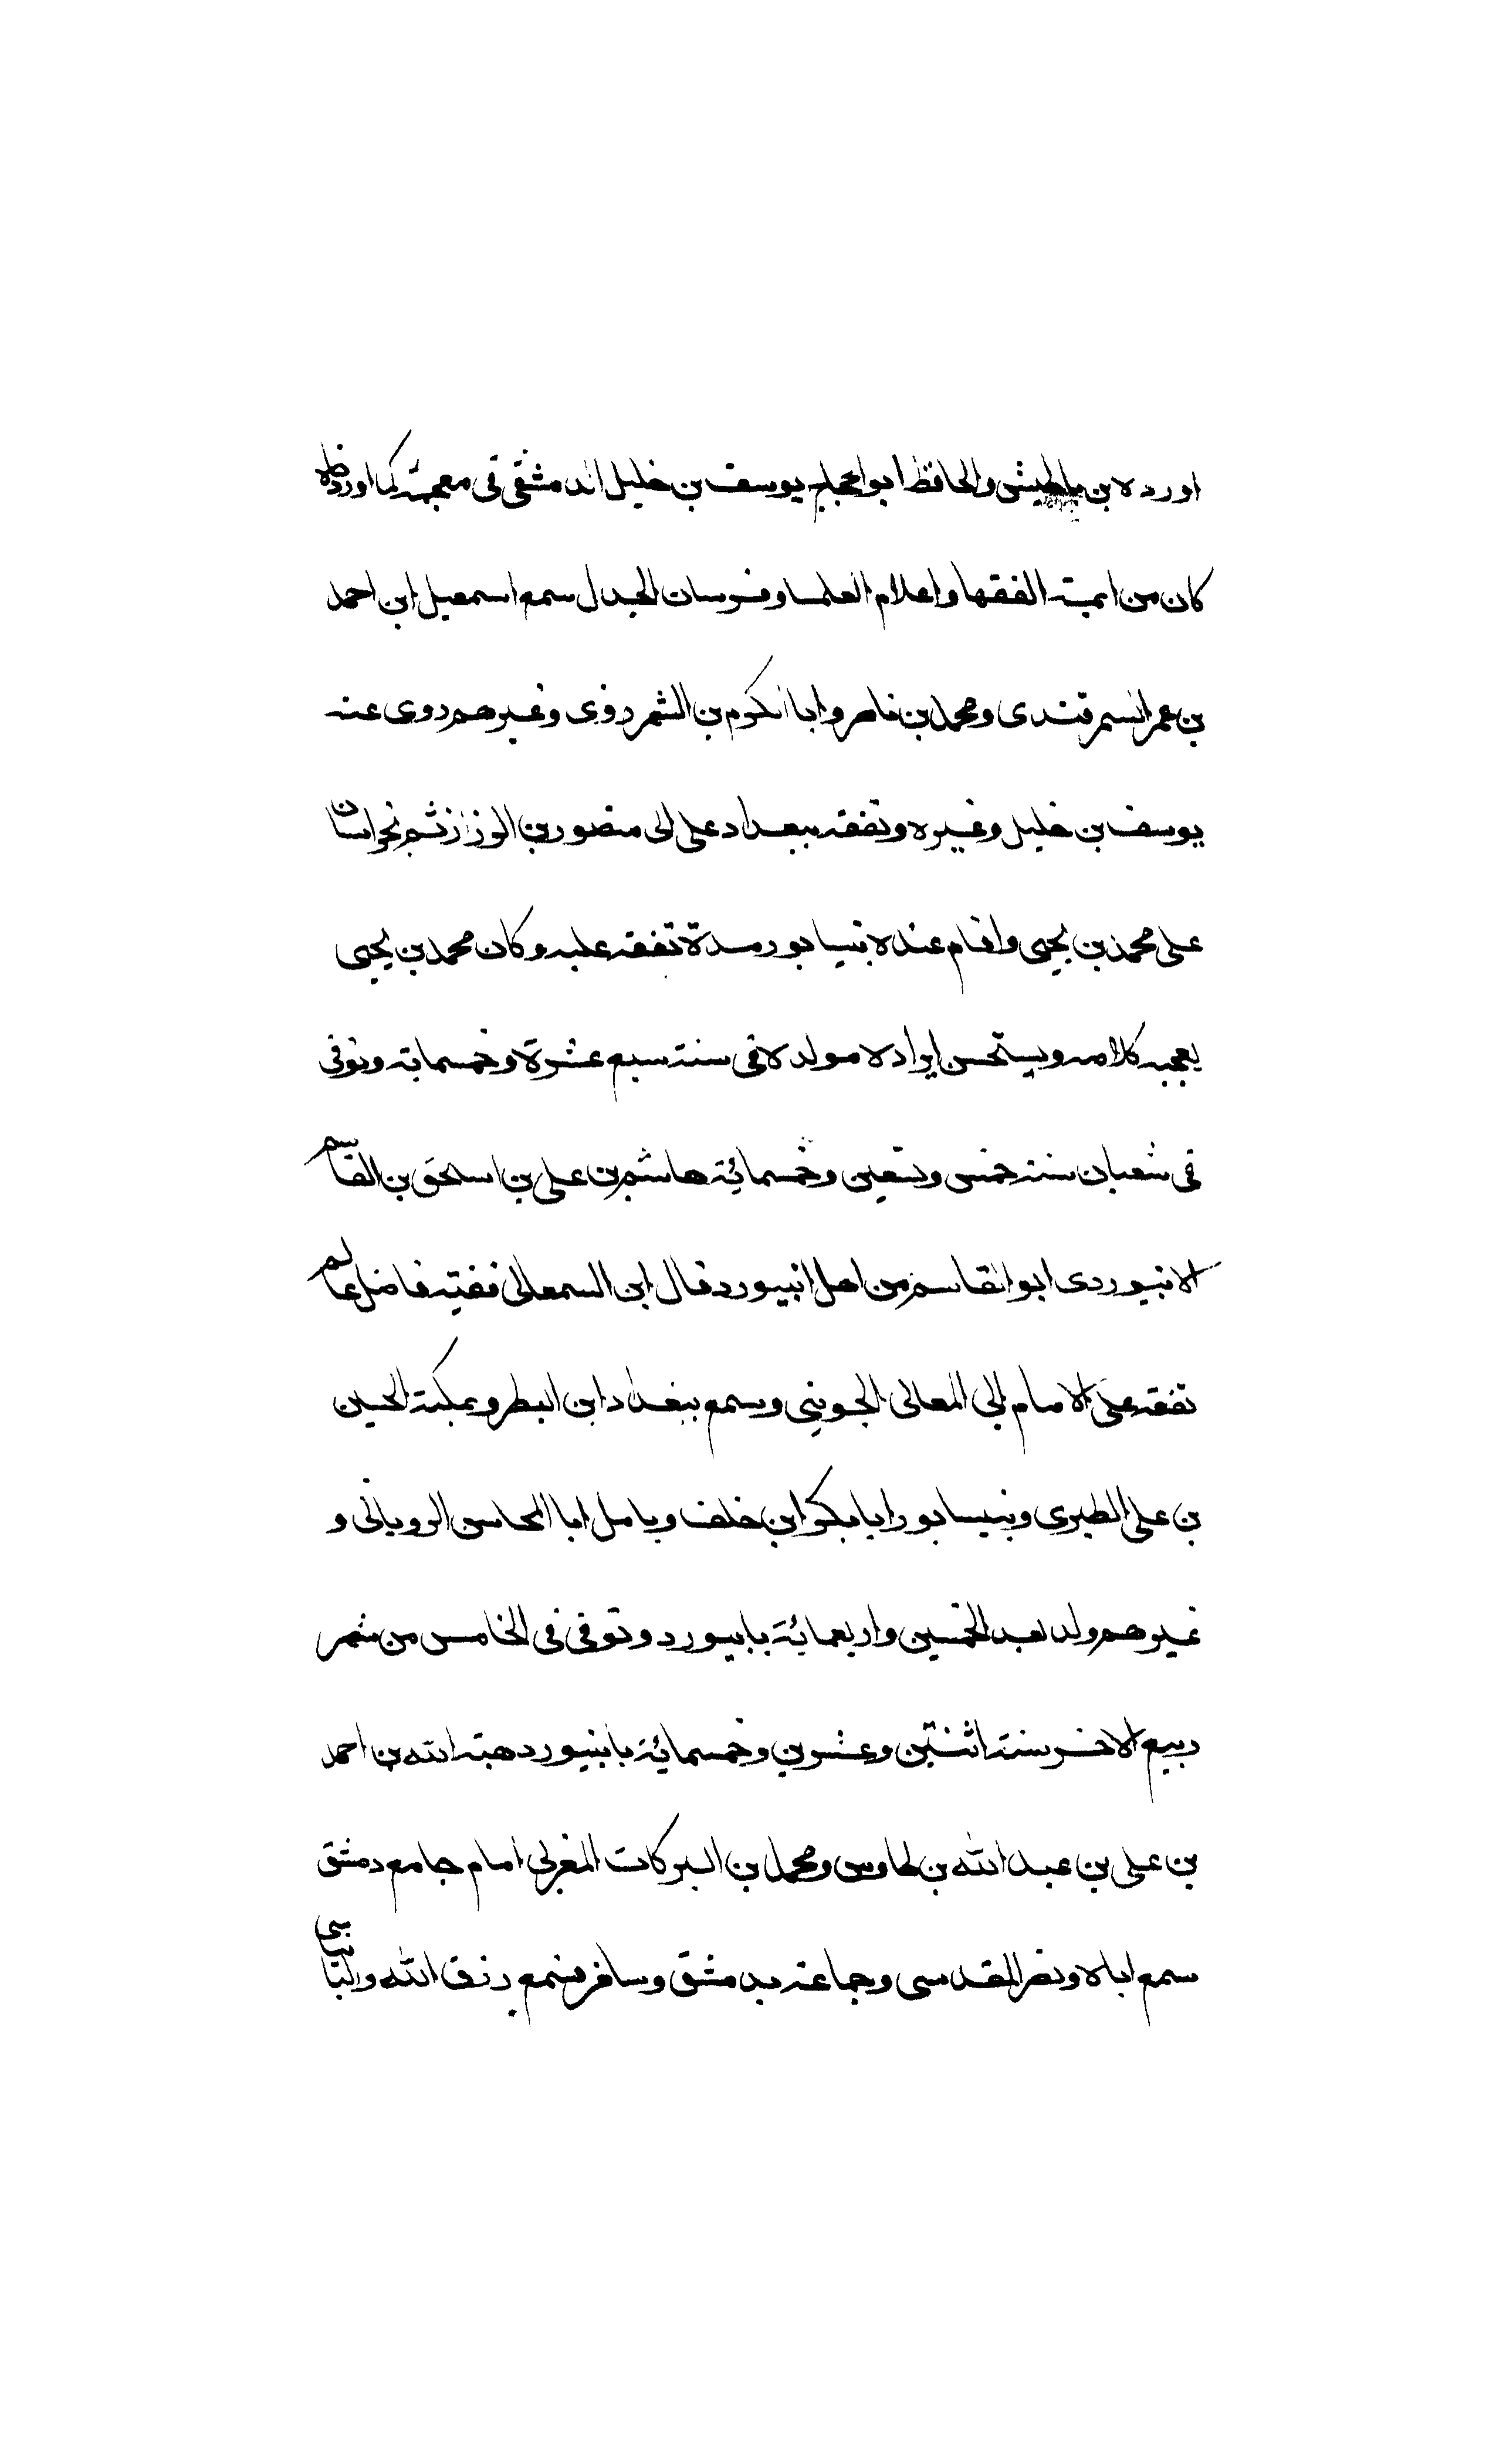 اورده ابن باطيش والحافظ ابو الحجاج يوسف بن خليل الدمشقى فى معجمة كما اوردناه
كان من ايمة الفقها واعلام العلما وفرسان الجدل سمع اسمعيل ابن احمد
بن عمر السمرقندى ومحمد بن ناصر وابا الكرم بن الشهرزورى وغيرهم روى عنه
يوسف بن خليل وغيره وتفقه ببغداد على ابى منصور بن الوزاز ثم نجراسان
على محمد بن يحيى واقام عنده بنيسابور مدة تفقه عليه وكان محمد بن يحيى
يعجبه كلامه ويستحسن ايراده مولده فى سنة سبع عشرة وخمسماية وتوفى
فى شعبان سنة خمس وتسعين وخمسمائة هاشم بن على بن اسحق بن القاسم
الابيوردى ابو القاسم من اهل ابيورد قال ابن السمعانى فقيه فاضل عالم
تفقه على الامام ابى المعالى الجوينى وسمع ببغداد ابن البطر وبمكة الحسين
بن على الطبرى وبنيسابور ابا بكر ابن خلف وبامل ابا المحاسن الرويانى و
غيرهم ولد بعد الخمسين واربعمائة بابيورد وتوفى فى الخامس من شهر
ربيع الاخر سنة اثنتين وعشرين وخمسمائة بابيورد هبة الله بن احمد
بن على بن عبد الله بن طاوس ومحمد بن البركات المغربى امام جامع دمشق
سمع اباه ونصر المقدسى وجماعة بدمشق وسافر فسمع رزق الله